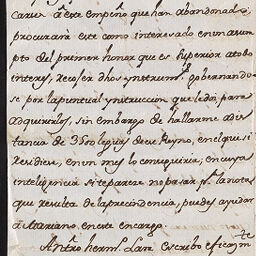 Caru à este empeño que han abandonado,
procurarà este como interesado en un asum
pto del primer honor que es superior a todo
interes, recoser dhos ynstrumtos gobernando
se por la puntual ynstruccion que le doi, para
adquirirlos, sin embargo de hallarme a dis
tancia de 3500 leguas de ese Reyno, en el qual si
residiera, en un mes lo conseguiria, en cuya
inteligencia si te parece no pasar pr. la nota
que resulta de la precidencia, puedes ayudar
à Mariano en este encargo.
Antro hermo Clara escribo eficazmte